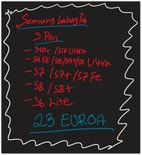 Samsung Galaxy Tab
S Pen
- S10+ / S10 Ultra
- S9 FE / S9 / S9+ / S9 Ultra
- S7 / S7+ / S7 FE
- S8 / S8+
- S6 Lite
23 EUROA